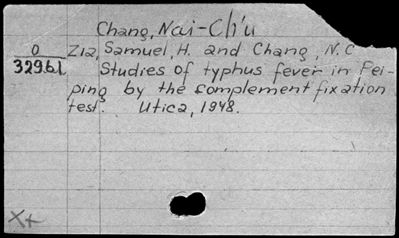 Chang, Nai-Ch'u
O Zia, Samuel, H. and Chang, N.C
32961 Studies of typhus fever in Fei-
ping by the complement fixation
test. Utica, 1948.
X+